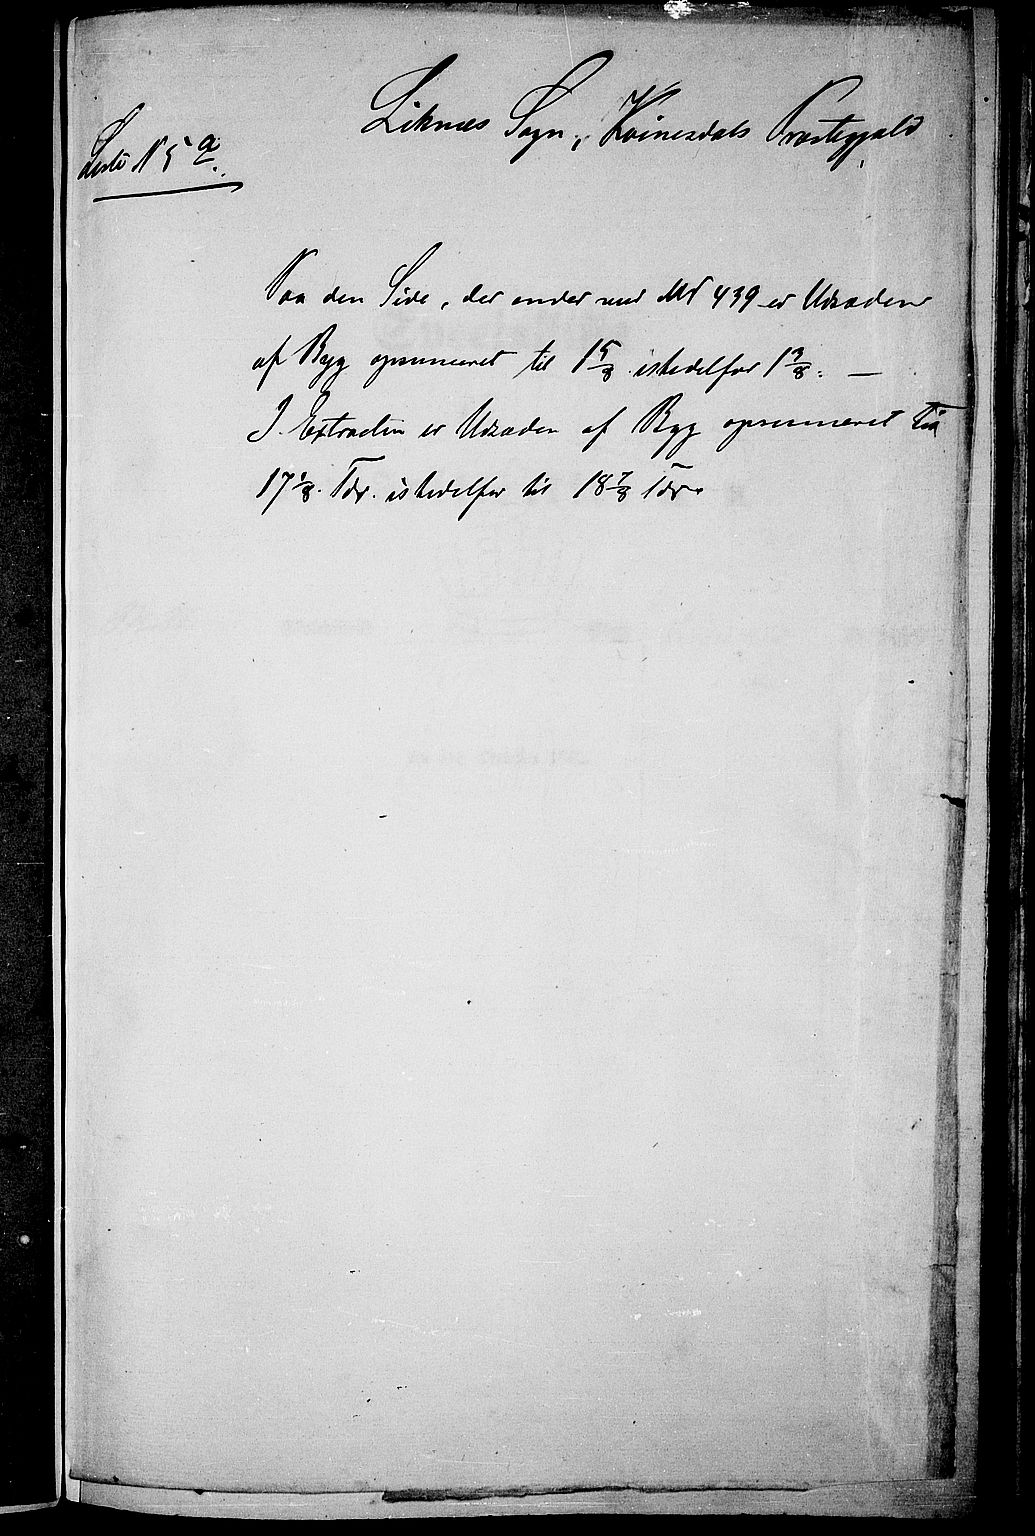 Liknæs Sogn, Kvinesdals Præstegjæld
Liste N 5 a.
Paa den Side, der ender med MN 439 er Udsæden
af Byg opsummeret til 1 5/8 istedelfor 1 3/8. —
I Extracten er Udsæden af Byg opsummeret til
17 1/8 Tdr. istedelfor til 18 7/8 Tdr.